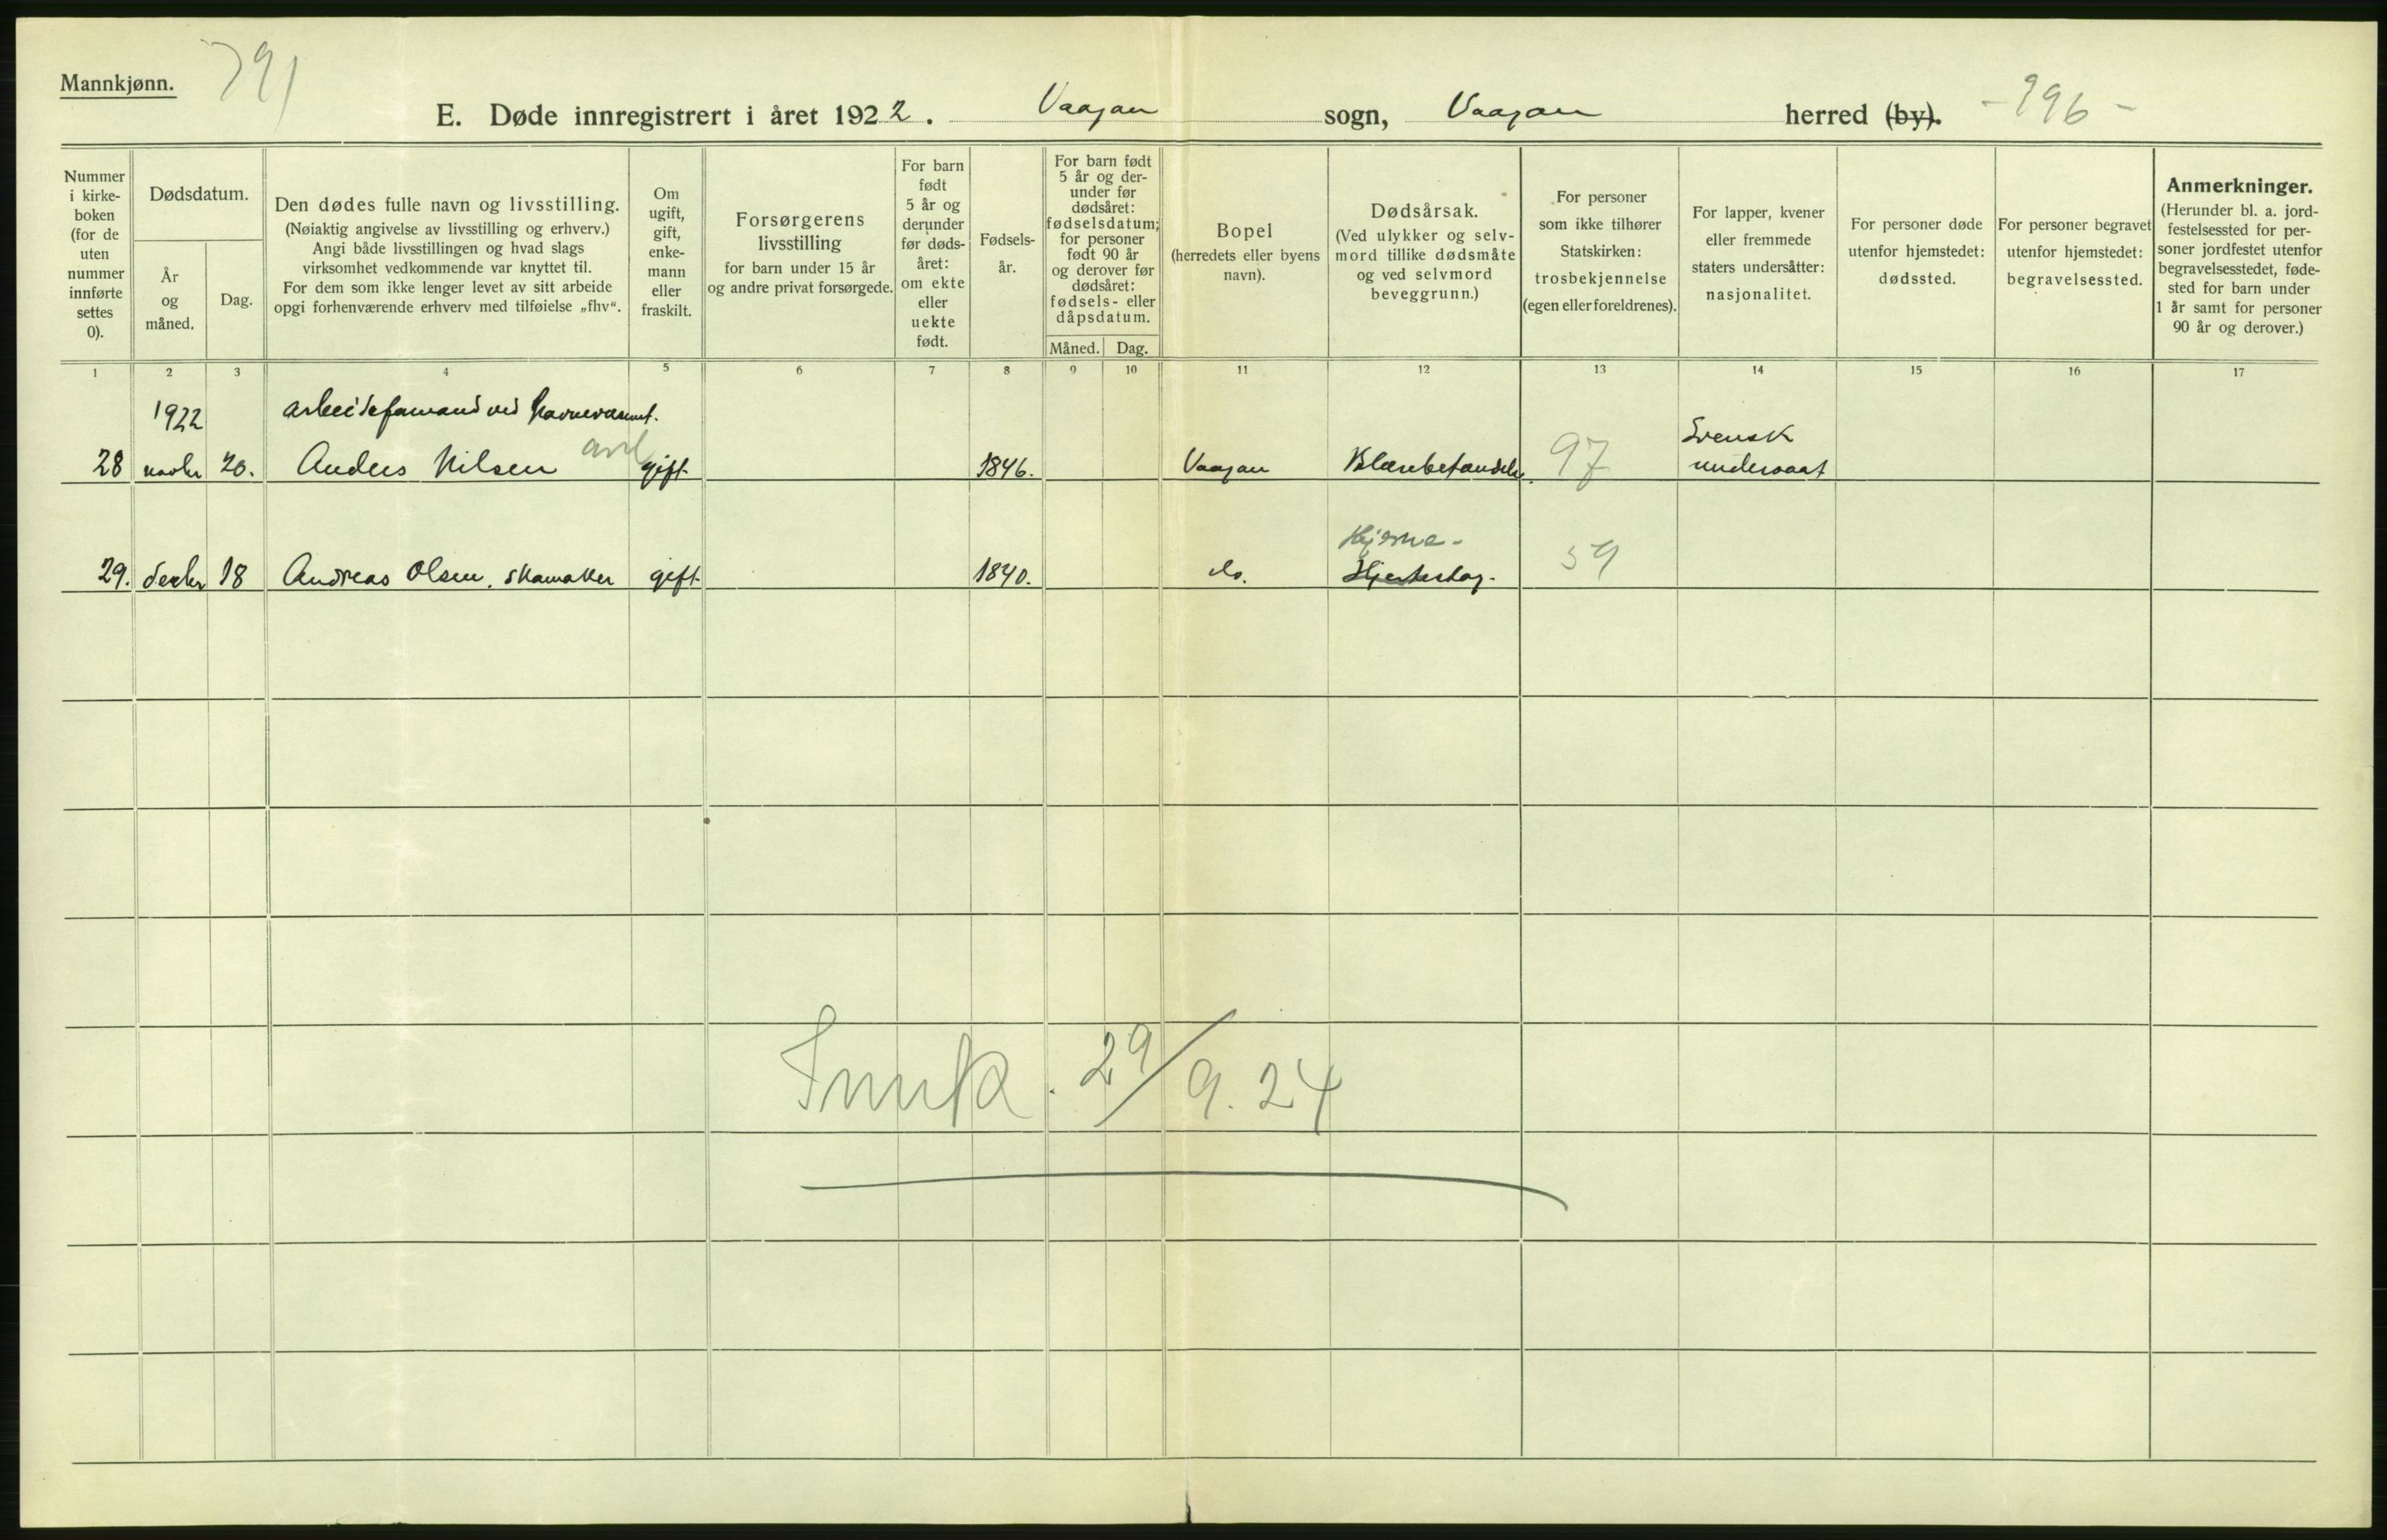 Mannkjønn.
791
E. Døde innregistrert i året 1922. Vaagan sogn, Vaagan herred (by). -296-
Nummer
i kirke-
boken
(for de
uten
nummer
innførte
settes
0).
Dødsdatum.
År
og
måned.
Dag.
Den dødes fulle navn og livsstilling.
(Nøiaktig angivelse av livsstilling og erhverv.)
Angi både livsstillingen og hvad slags
virksomhet vedkommende var knyttet til.
For dem som ikke lenger levet av sitt arbeide
opgi forhenværende erhverv med tilføielse „fhv“.
Om
ugift,
gift,
enke-
mann
eller
fraskilt.
Forsørgerens
livsstilling
for barn under 15 år
og andre privat forsørgede.
For barn
født
5 år og
derunder
før døds-
året:
om ekte
eller
uekte
født.
Fødsels-
år.
For barn født
5 år og der-
under før
dødsåret:
fødselsdatum;
for personer
født 90 år
og derover før
dødsåret:
fødsels- eller
dåpsdatum.
Måned. Dag.
Bopel
(herredets eller byens
navn).
Dødsårsak.
(Ved ulykker og selv-
mord tillike dødsmåte
og ved selvmord
beveggrunn.)
For personer
som ikke tilhører
Statskirken:
trosbekjennelse
(egen eller foreldrenes).
For lapper, kvener
eller fremmede
staters undersåtter:
nasjonalitet.
For personer døde
utenfor hjemstedet:
dødssted.
For personer begravet
utenfor hjemstedet:
begravelsessted.
Anmerkninger.
(Herunder bl. a. jord-
festelsessted for per-
soner jordfestet utenfor
begravelsesstedet, føde-
sted for barn under
1 år samt for personer
90 år og derover.)
1 2 3 4 5 6 7 8 9 10 11 12 13 14 15 16 17
1922 arbeidsformand ved havnevæsenet. Svensk
28 novbr 20. Anders Nilsen gift 1846. Vaagan Blærebetændelse. 97 undersaat
Hjerne-
29. decbr 18 Andreas Olsen, skomaker gift 1840. do. Hjerteslag. 59
29/9.24